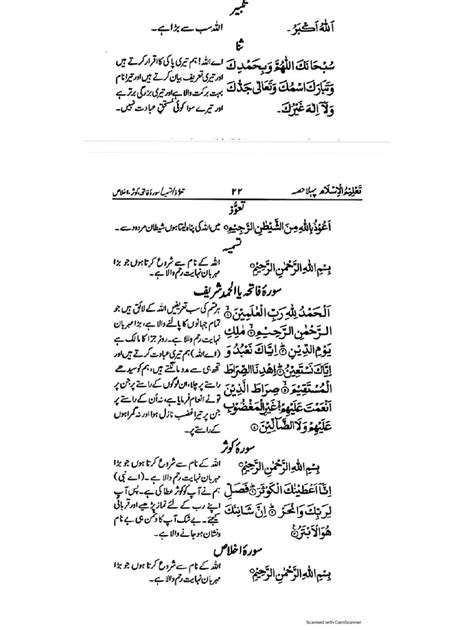 تکبیر
اَللّٰهُ اَكْبَرُ۔ اللہ سب سے بڑا ہے۔
ثنا
سُبْحَانَكَ اللّٰهُمَّ وَبِحَمْدِكَ اے اللہ! ہم تیری پاکی کا اقرار کرتے ہیں
وَتَبَارَكَ اسْمُكَ وَتَعَالٰى جَدُّكَ اور تیری تعریف بیان کرتے ہیں اور تیرا نام
بہت برکت والا ہے اور تیری بزرگی برتر ہے
وَلَا اِلٰهَ غَيْرُكَ۔ اور تیرے سوا کوئی مستحقِ عبادت نہیں۔
تعلیم الاسلام پہلا حصہ ۲۲ تعوذ/تسمیہ/سورۂ فاتحہ، کوثر، اخلاص
تعوّذ
اَعُوْذُ بِاللّٰهِ مِنَ الشَّيْطٰنِ الرَّجِيْمِ میں اللہ کی پناہ لیتا ہوں شیطان مردود سے۔
تسمیہ
بِسْمِ اللّٰهِ الرَّحْمٰنِ الرَّحِيْمِ اللہ کے نام سے شروع کرتا ہوں جو بڑا
مہربان نہایت رحم والا ہے۔
سورۂ فاتحہ یا الحمد شریف
اَلْحَمْدُ لِلّٰهِ رَبِّ الْعٰلَمِيْنَ ہر قسم کی سب تعریفیں اللہ کے لائق ہیں جو
الرَّحْمٰنِ الرَّحِيْمِ مٰلِكِ تمام جہانوں کا پالنے والا ہے، بڑا مہربان
يَوْمِ الدِّيْنِ اِيَّاكَ نَعْبُدُ وَ نہایت رحم والا ہے۔ روزِ جزا کا مالک ہے
اِيَّاكَ نَسْتَعِيْنُ اِهْدِنَا الصِّرَاطَ (اے اللہ) ہم تیری عبادت کرتے ہیں اور
الْمُسْتَقِيْمَ صِرَاطَ الَّذِيْنَ تجھ ہی سے مدد مانگتے ہیں، ہم کو سیدھے
اَنْعَمْتَ عَلَيْهِمْ غَيْرِ الْمَغْضُوْبِ راستے پر چلا، ان لوگوں کے راستے پر جن پر
عَلَيْهِمْ وَلَا الضَّآلِّيْنَ تو نے انعام فرمایا ہے، نہ اُن کے راستے پر
جن پر تیرا غضب نازل ہوا اور نہ گمراہوں
کے راستے پر۔
سورۂ کوثر
بِسْمِ اللّٰهِ الرَّحْمٰنِ الرَّحِيْمِ اللہ کے نام سے شروع کرتا ہوں جو بڑا
مہربان نہایت رحم والا ہے۔ (اے نبی)
اِنَّا اَعْطَيْنٰكَ الْكَوْثَرَ فَصَلِّ ہم نے آپ کو کوثر عطا کی ہے۔ پس آپ
لِرَبِّكَ وَانْحَرْ اِنَّ شَانِئَكَ اپنے رب کے لئے نماز پڑھیے اور قربانی
هُوَ الْاَبْتَرُ کیجئے۔ بے شک آپ کا دشمن ہی بے نام
و نشان ہو جانے والا ہے۔
سورۂ اخلاص
بِسْمِ اللّٰهِ الرَّحْمٰنِ الرَّحِيْمِ اللہ کے نام سے شروع کرتا ہوں جو بڑا
مہربان نہایت رحم والا ہے۔
Scanned with CamScanner